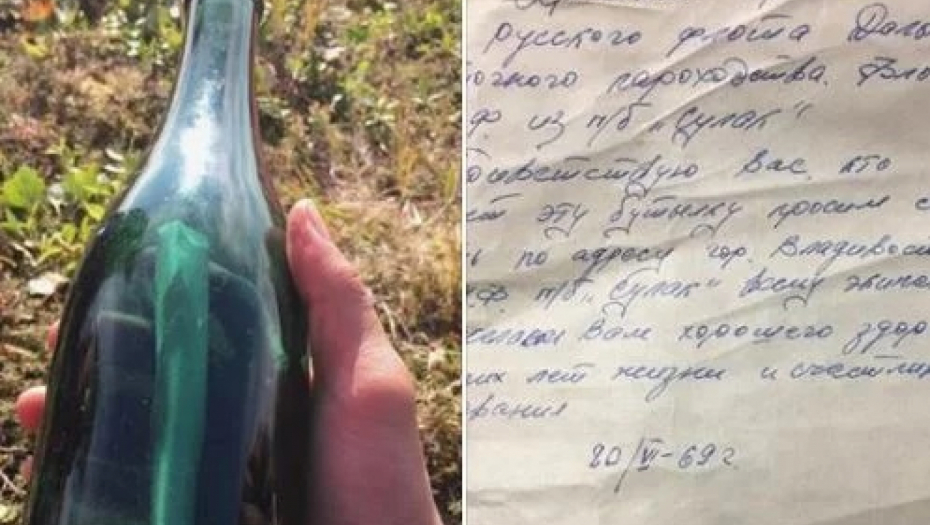 Русского флота Даль
точного пароходства. Фло
ф. из п/б „Сулак"
ветствую Вас, кто
ет эту бутылку просим с
ь по адресу гор. Владивост
Ф. п/б „Сулак" всему экипа
желаем Вам хорошего здор
их лет жизни и счастлив
вания
20/VI-69 г